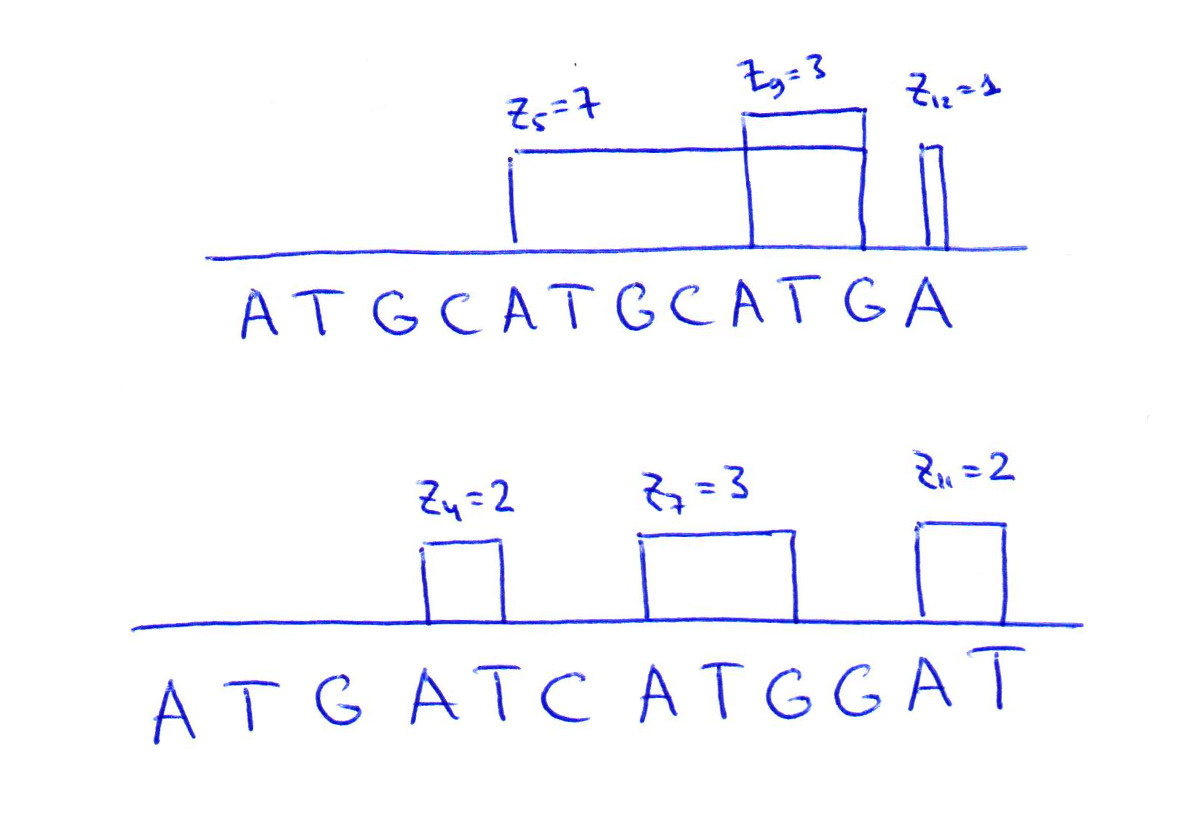 Z₅=7 Z₉=3 Z₁₂=1
A T G C A T G C A T G A
Z₄=2 Z₇=3 Z₁₁=2
A T G A T C A T G G A T